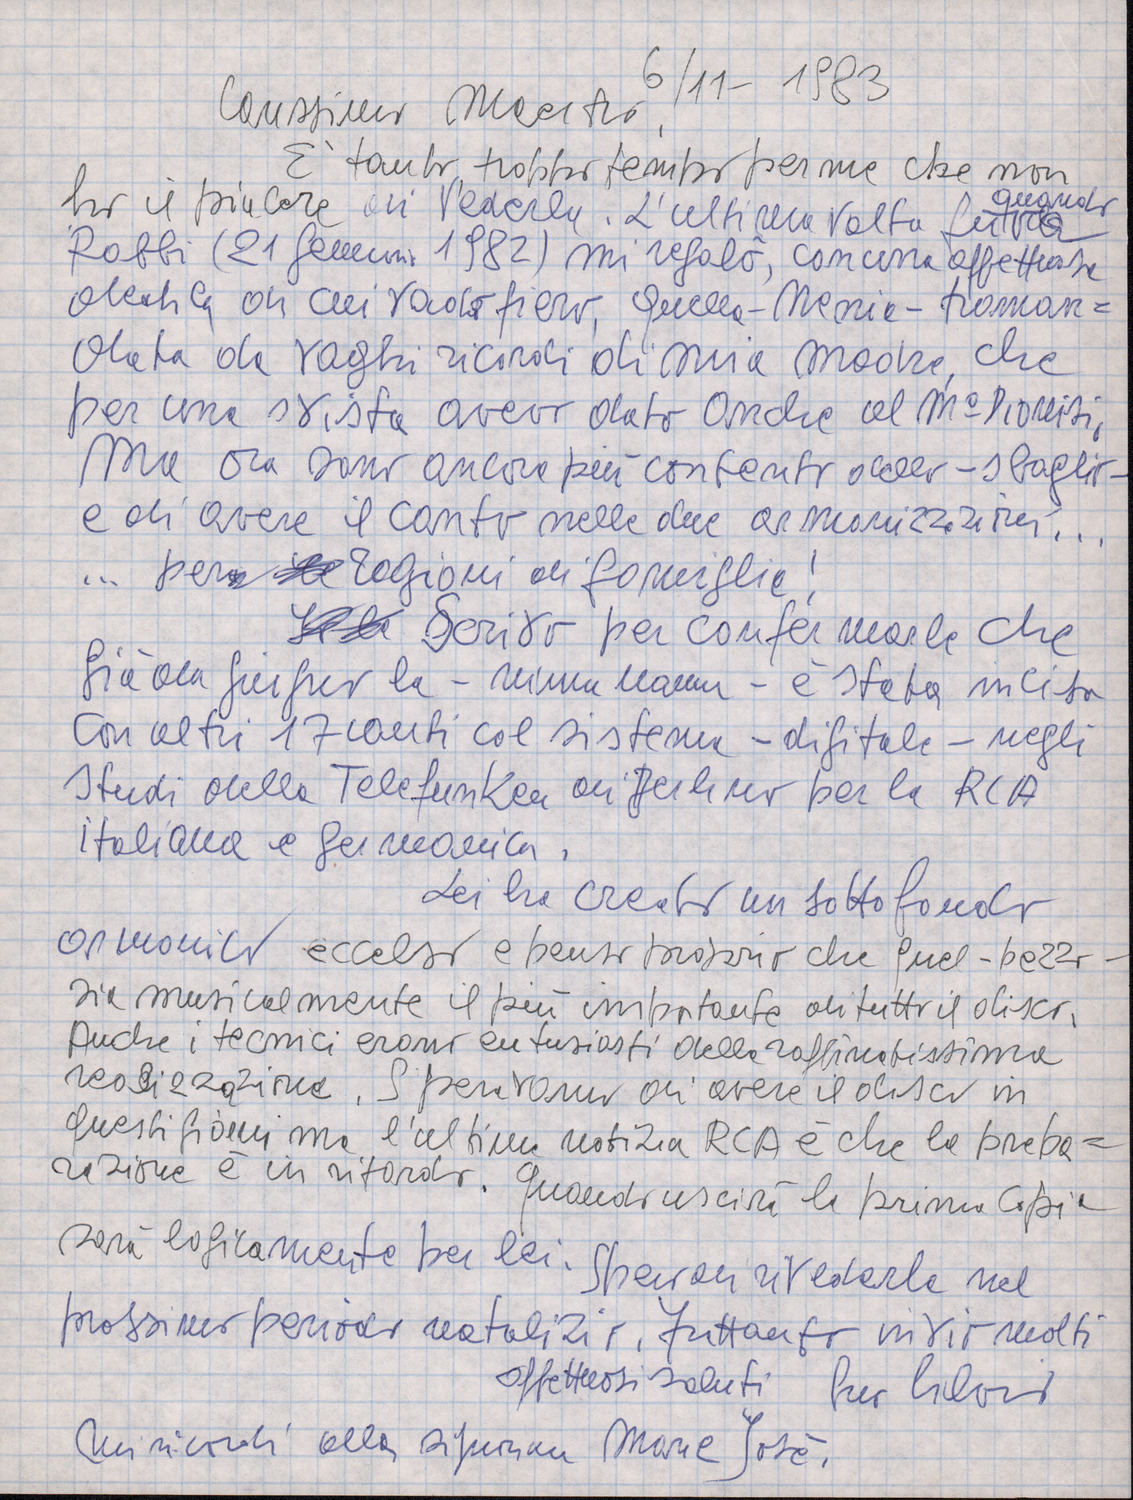 6/11- 1983
Carissimo Maestro,
E' tanto, troppo tempo per me che non
ho il piacere di vederla. L'ultima volta fu quando
Robbi (21 gennaio 1982) mi regalò, con una affettuosa
dedica di cui vado fiero, quella - Nenia - traman=
data da vaghi ricordi di mia madre, che
per una svista avevo dato anche al Mº Dionisi,
Ma ora sono ancora più contento dello - sbaglio -
e di avere il canto nelle due armonizzazioni...
... per ragioni di famiglia!
Scrivo per confermarle che
già da giugno la - ninna nanna - è stata incisa
con altri 17 canti col sistema - digitale - negli
studi della Telefunken di Berlino per la RCA
italiana e germanica.
Lei ha creato un sottofondo
armonico eccelso e penso proprio che quel - pezzo -
sia musicalmente il più importante di tutto il disco.
Anche i tecnici erano entusiasti della raffinatissima
realizzazione. Speravamo di avere il disco in
questi giorni ma l'ultima notizia RCA è che la prepa=
razione è in ritardo. Quando uscirà la prima copia
sarà logicamente per lei. Spero di rivederla nel
prossimo periodo natalizio. Intanto invio molti
affettuosi saluti
Mi ricordi alla signora Marie José.